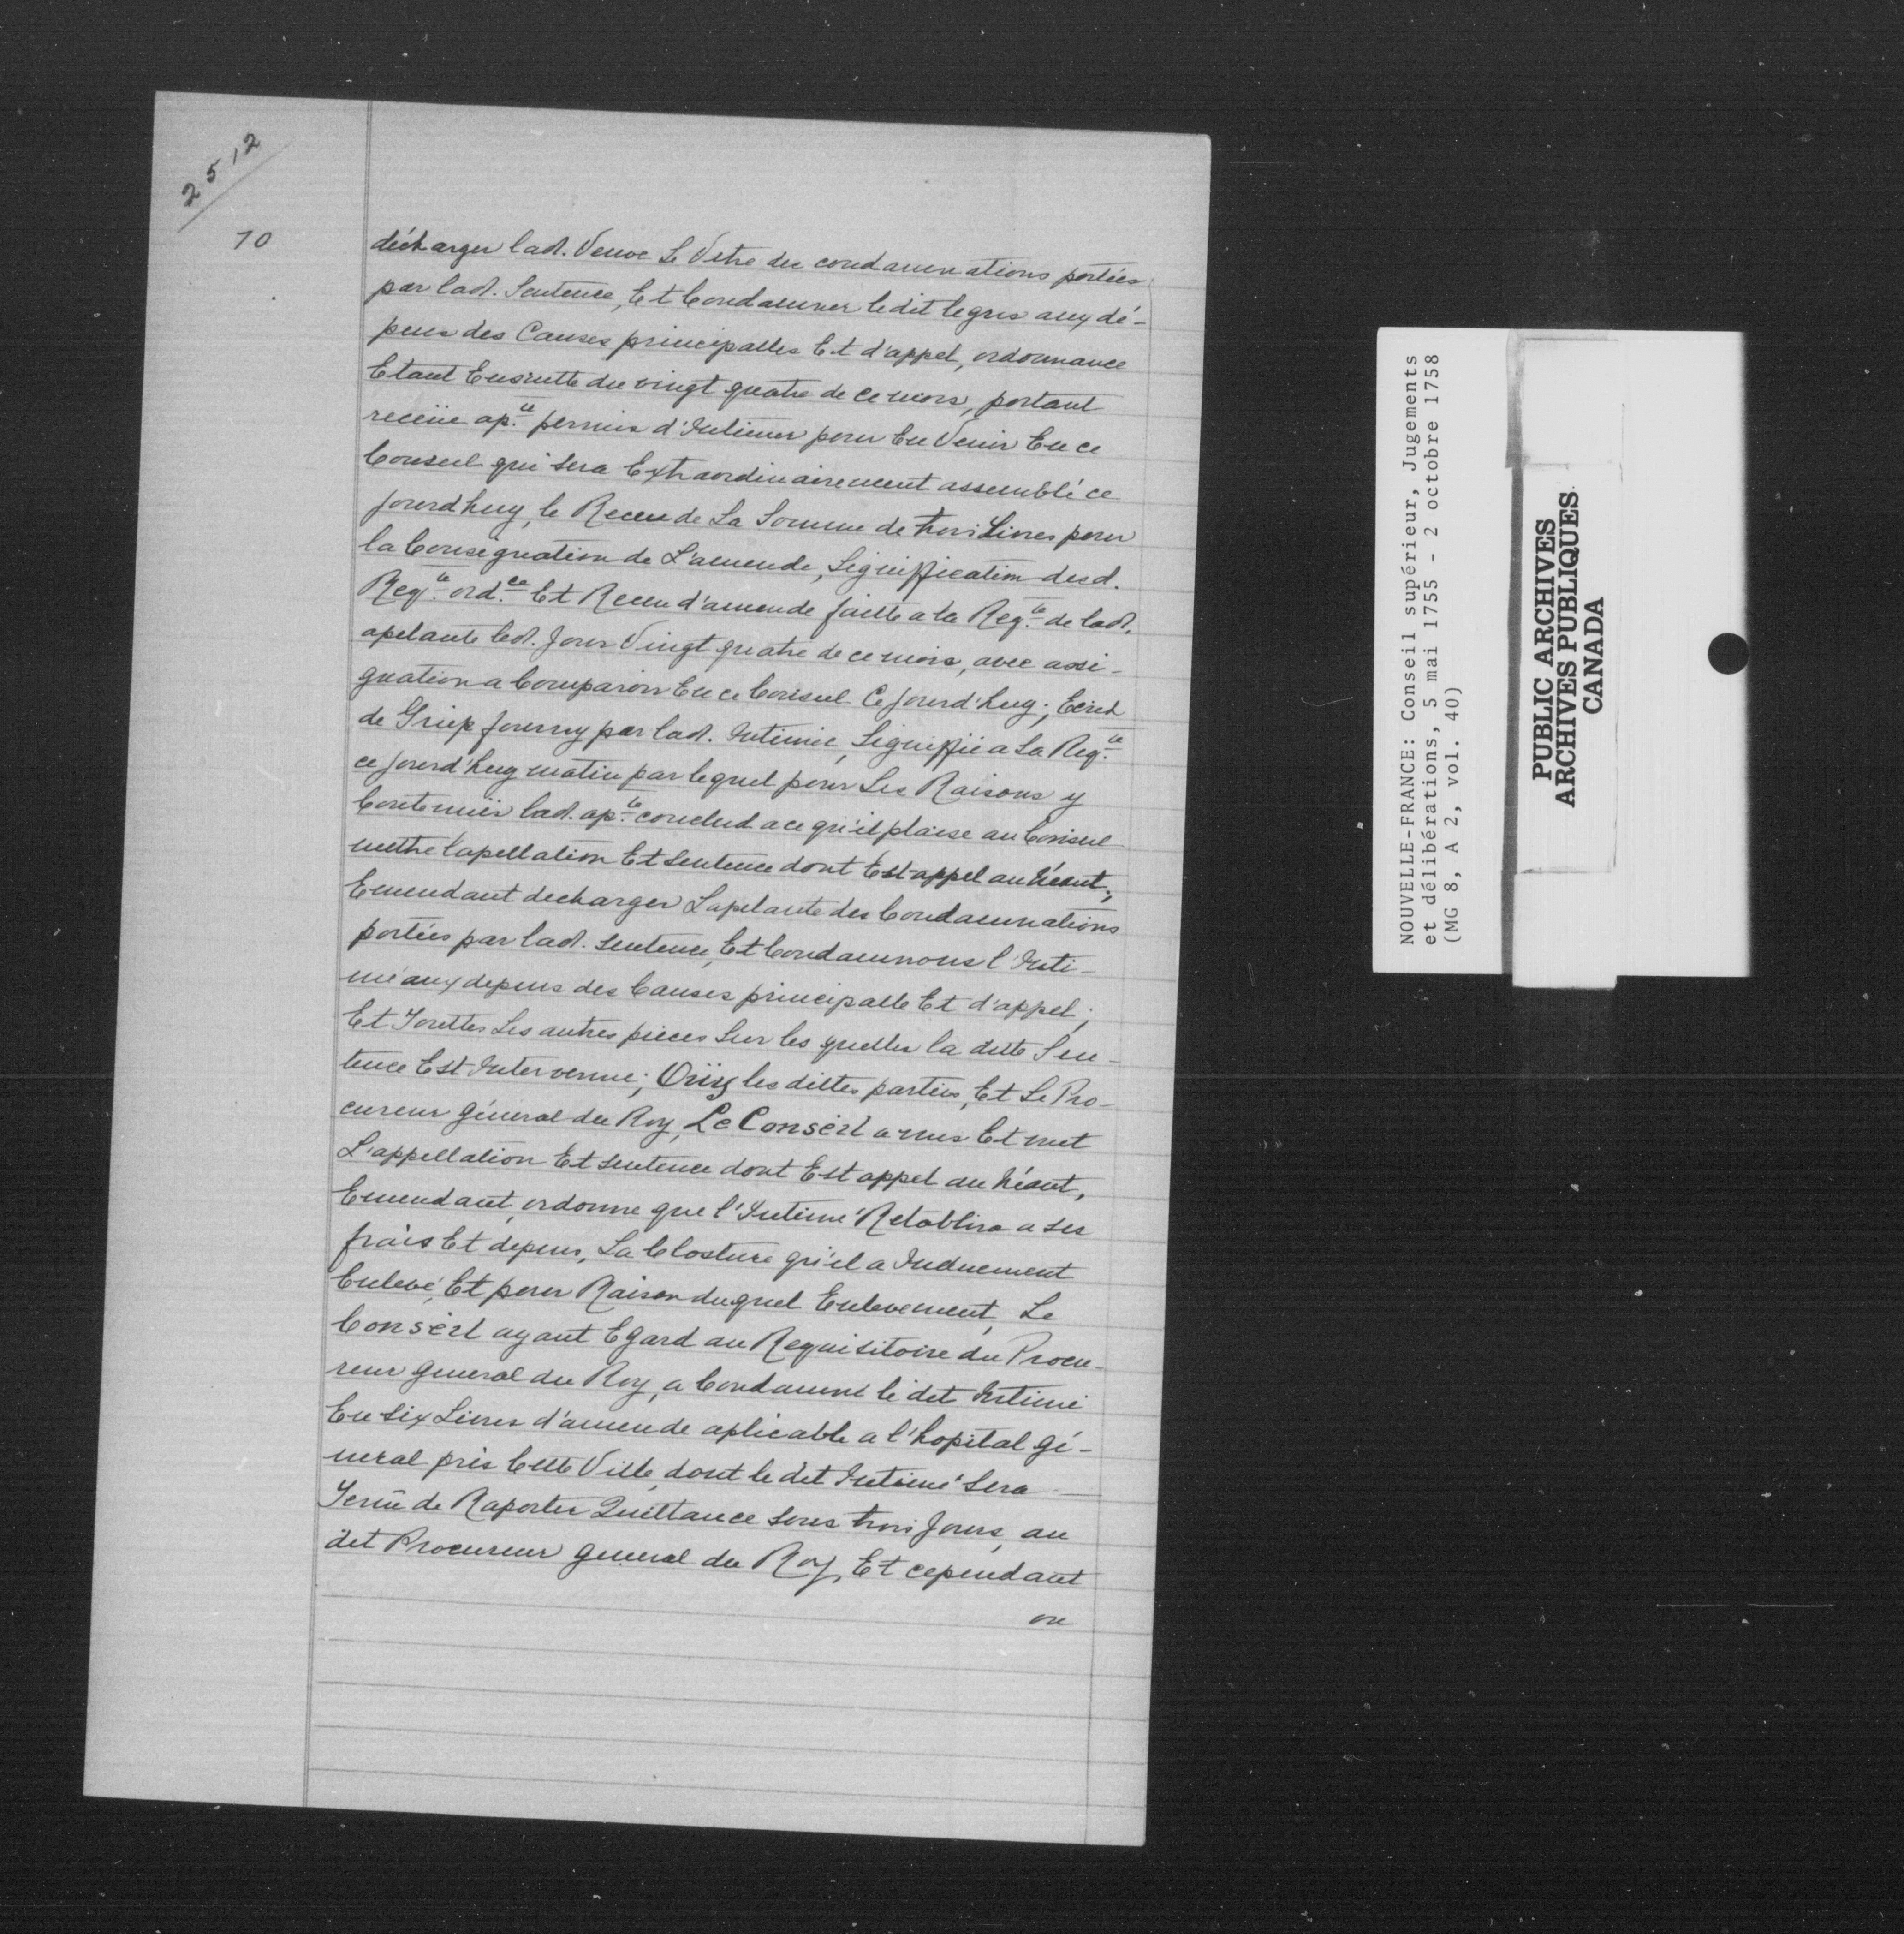 2512
10
décharger lad. Veuve Le Vitre des condamnations portées
par lad. Sentence, Et Condamner le dit legris aux dé-
pens des Causes principalles Et d'appel, ordonnance
Etant Ensuitte du vingt quatre de ce mois, portant
reçüe ap.te permis d'Intimer pour En Venir En ce
Conseil qui sera Extraordinairement assemblé ce
jourdhuy, le Receu de La Somme de trois Livres pour
la Consignation de L'amende, Signiffication desd.
Reqte. ord.ce Et Receu d'amende faitte a la Reqte. de lad.
apelante led. Jour Vingt quatre de ce mois, avec assi-
gnation a Comparoir En ce Conseil Ce jourd'huy; Ecrit
de Grief fourny par lad. Intimée, Signiffié a La Reqte.
ce jourd'huy matin par lequel pour Les Raisons y
Contenües lad. ap.te conclud a ce qu'il plaise au Conseil
mettre l'apellation Et Sentence dont Est appel au Néant;
Emendant decharger L'apelante des Condamnations
portées par lad. Sentence, Et Condamnons l'Inti-
mé aux depens des Causes principalle Et d'appel;
Et Touttes Les autres pieces Sur les quelles la ditte Sen-
tence Est Intervenue; Oüy les dittes parties, Et Le Pro-
cureur général du Roy, Le Conseil a mis Et met
L'appellation Et Sentence dont Est appel au Néant,
Emendant, ordonne que l'Intimé Retablira a ses
frais Et depens, La Closture qu'il a Induement
Enlevé, Et pour Raison duquel Enlevement, Le
Conseil ayant Egard au Requisitoire du Procu-
reur general du Roy, a Condamné le dit Intimé
En Six Livres d'amende aplicable a l'hopital gé-
neral près Cette Ville, dont le dit Intimé Sera
Tenü de Raporter Quittance sous trois Jours, au
dit Procureur general du Roy, Et cependant
on
NOUVELLE-FRANCE: Conseil supérieur, Jugements
et délibérations, 5 mai 1755 - 2 octobre 1758
(MG 8, A 2, vol. 40)
PUBLIC ARCHIVES
ARCHIVES PUBLIQUES
CANADA